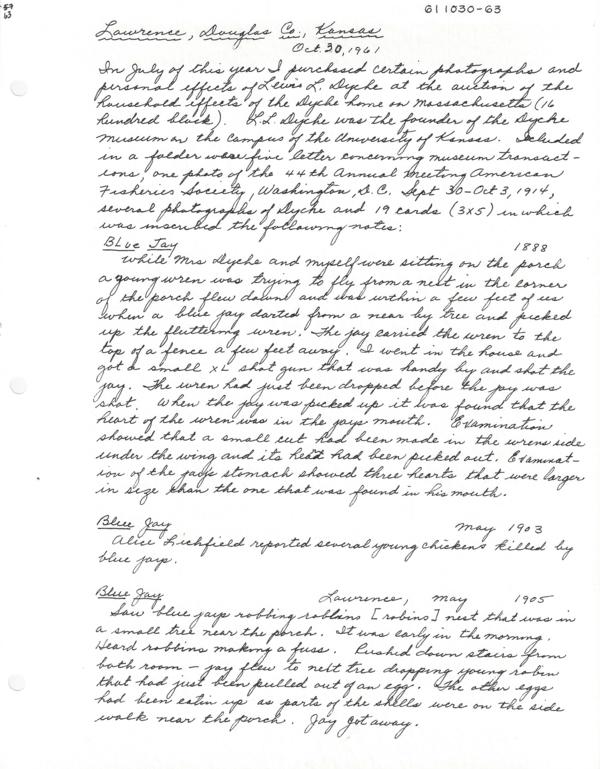 59
63
611030-63
Lawrence, Douglas Co., Kansas
Oct. 30, 1961
In July of this year I purchased certain photographs and
personal effects of Lewis L. Dyche at the auction of the
household effects of the Dyche home on Massachusetts (16
hundred block). L.L. Dyche was the founder of the Dyche
Museum on the campus of the University of Kansas. Included
in a folder were five letter concerning museum transact-
ions, one photo of the 44th Annual Meeting American
Fisheries Society, Washington, D.C. Sept 30-Oct 3, 1914,
several photographs of Dyche and 19 cards (3x5) in which
was inscribed the following notes:
Blue Jay 1888
While Mrs Dyche and myself were sitting on the porch
a young wren was trying to fly from a nest in the corner
of the porch flew down and was within a few feet of us
when a blue jay darted from a near by tree and picked
up the fluttering wren. The jay carried the wren to the
top of a fence a few feet away. I went in the house and
got a small XL shot gun that was handy by and shot the
jay. The wren had just been dropped before the jay was
shot. When the jay was picked up it was found that the
heart of the wren was in the jays mouth. Examination
showed that a small cut had been made in the wrens side
under the wing and its heart had been picked out. Examinat-
ion of the jays stomach showed three hearts that were larger
in size than the one that was found in his mouth.
Blue Jay May 1903
Alice Lichfield reported several young chickens killed by
blue jays.
Blue Jay Lawrence, May 1905
Saw blue jays robbing robbins [robins] nest that was in
a small tree near the porch. It was early in the morning.
Heard robbins making a fuss. Rushed down stairs from
bath room - jay flew to next tree dropping young robin
that had just been pulled out of an egg. The other eggs
had been eatin up as parts of the shells were on the side
walk near the porch. Jay got away.